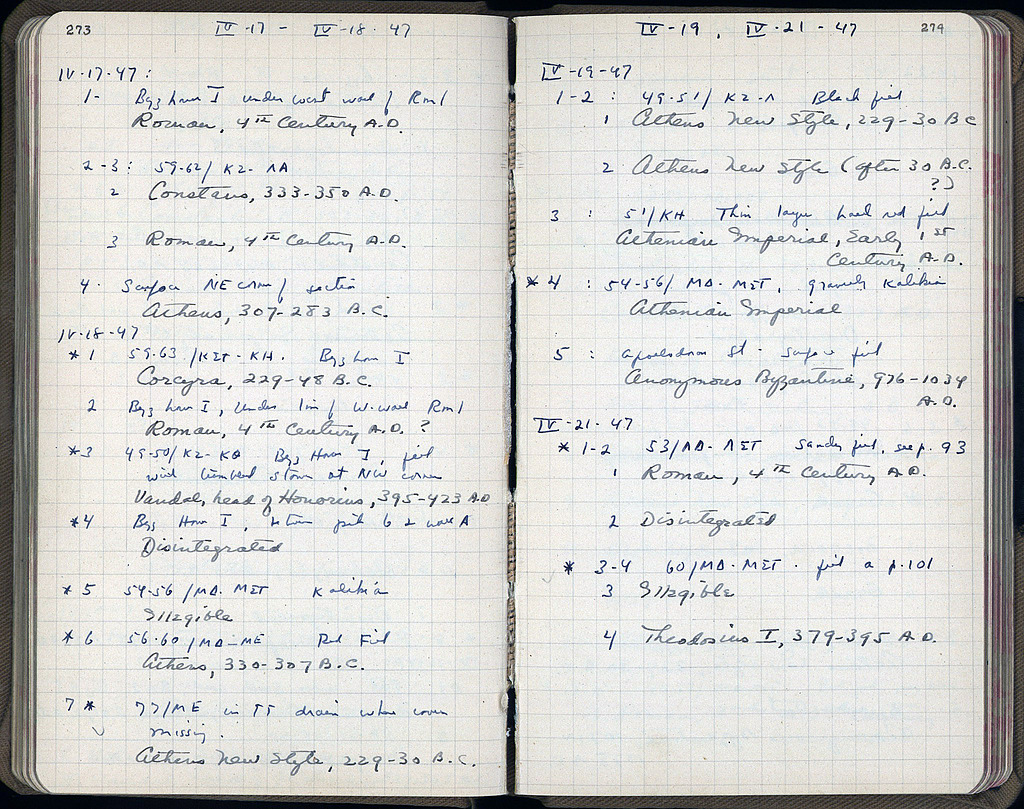 273
IV-17 - IV-18-47
IV-17-47:
1- Byz house I under west wall / Rm 1
Roman, 4th Century A.D.
2-3: 59-62/ KZ- ΛA
2 Constans, 333-350 A.D.
3 Roman, 4th Century A.D.
4. Surface NE corner / section
Athens, 307-283 B.C.
IV-18-47
* 1 59-63 /KET-KH. Byz house I
Corcyra, 229-48 B.C.
2 Byz house I, under W. wall Rm 1
Roman, 4th Century A.D. ?
*3 49-50/KZ-KΘ Byz House I, fill
with tumbled stones at NW corner
Vandal, head of Honorius, 395-423 A.D
*4 Byz House I, between 6 2 wall A
Disintegrated
* 5 54-56 /MΔ-MET Kalibia
Illegible
* 6 56-60 /MΔ-ME Red Fill
Athens, 330-307 B.C.
7 * 77/ME in TT drain where cover
missing.
Athens New Style, 229-30 B.C.
274
IV-19, IV-21-47
IV-19-47
1-2 : 49-51/ KZ-Λ Black fill
1 Athens New Style, 229-30 B C
2 Athens New Style (after 30 B.C.
?)
3 : 51/KH Thin layer hard red fill
Athenian Imperial, Early 1st
Century A.D.
* 4 : 54-56/ MΔ-MET, gravelly Kalibia
Athenian Imperial
5 : Apollodorou St - surface fill
Anonymous Byzantine, 976-1034
A.D.
IV-21-47
* 1-2 53/ΛΔ-ΛET sandy fill, see p. 93
1 Roman, 4th Century A D.
2 Disintegrated
* 3-4 60/MΔ-MET. fill a p. 101
3 Illegible
4 Theodosius I, 379-395 A.D.